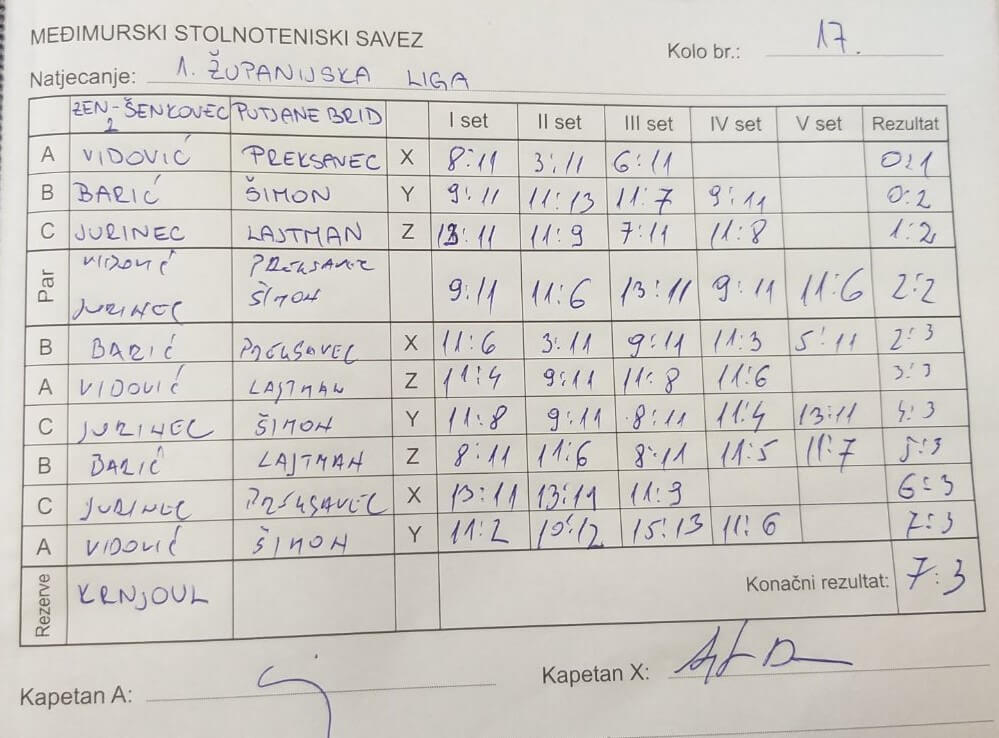 MEĐIMURSKI STOLNOTENISKI SAVEZ
Kolo br.: 17.
Natjecanje: 1. ŽUPANIJSKA LIGA
ZEN-ŠENKOVEC 2 PUTJANE BRID I set II set III set IV set V set Rezultat
A VIDOVIĆ PREKSAVEC X 8:11 3:11 6:11 0:1
B BARIĆ ŠIMON Y 9:11 11:13 11:7 9:11 0:2
C JURINEC LAJTMAN Z 13:11 11:9 7:11 11:8 1:2
Par VIDOVIĆ JURINEC PREKSAVEC ŠIMON 9:11 11:6 13:11 9:11 11:6 2:2
B BARIĆ PREKSAVEC X 11:6 3:11 9:11 11:3 5:11 2:3
A VIDOVIĆ LAJTMAN Z 11:4 9:11 11:8 11:6 3:3
C JURINEC ŠIMON Y 11:8 9:11 8:11 11:4 13:11 4:3
B BARIĆ LAJTMAN Z 8:11 11:6 8:11 11:5 11:7 5:3
C JURINEC PREKSAVEC X 13:11 13:11 11:9 6:3
A VIDOVIĆ ŠIMON Y 11:2 10:12 15:13 11:6 7:3
Rezerve KRNJOUL Konačni rezultat: 7:3
Kapetan A:
Kapetan X: